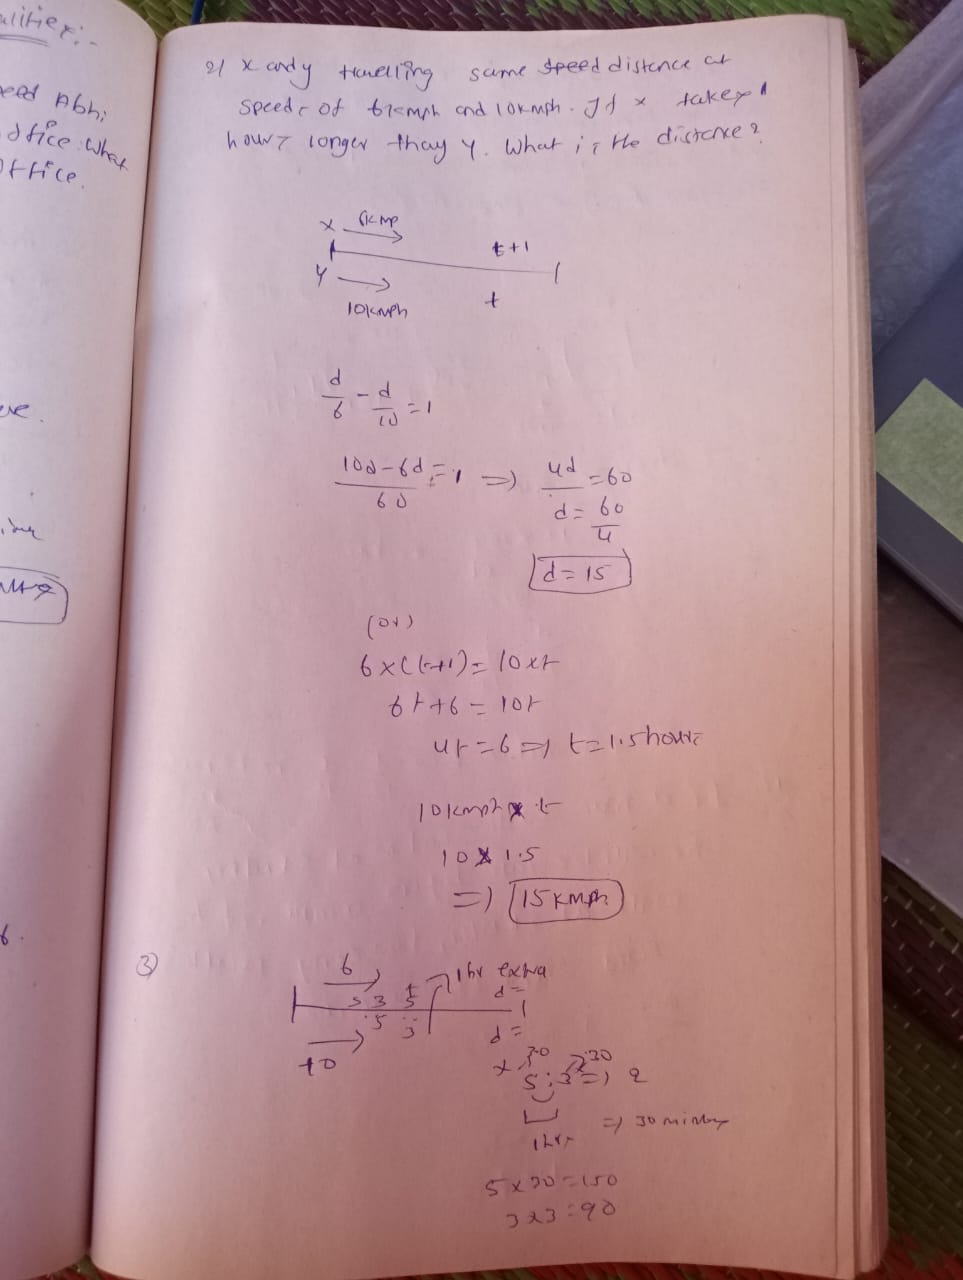 ead Abhi
office. What
office.
2) x andy travelling same speed distance at
speeds of 6kmph and 10kmph. If x takes 1
hours longer thay y. What is the distance?
x 6kmp
t+1
y
10kmph
t
d/6 - d/10 = 1
10d-6d/60 = 1 => 4d = 60
d = 60/4
d = 15
(or)
6x(t+1) = 10xt
6t+6 = 10t
4t = 6 => t=1.5hours
10kmph x t
10 x 1.5
=) 15kmph
6.
3)
6 1hr extra
5 3 5 d=
5 : 3 d=
10
x 30 30
5:3 => 2
1hr => 30
5x30=150
3x3=90